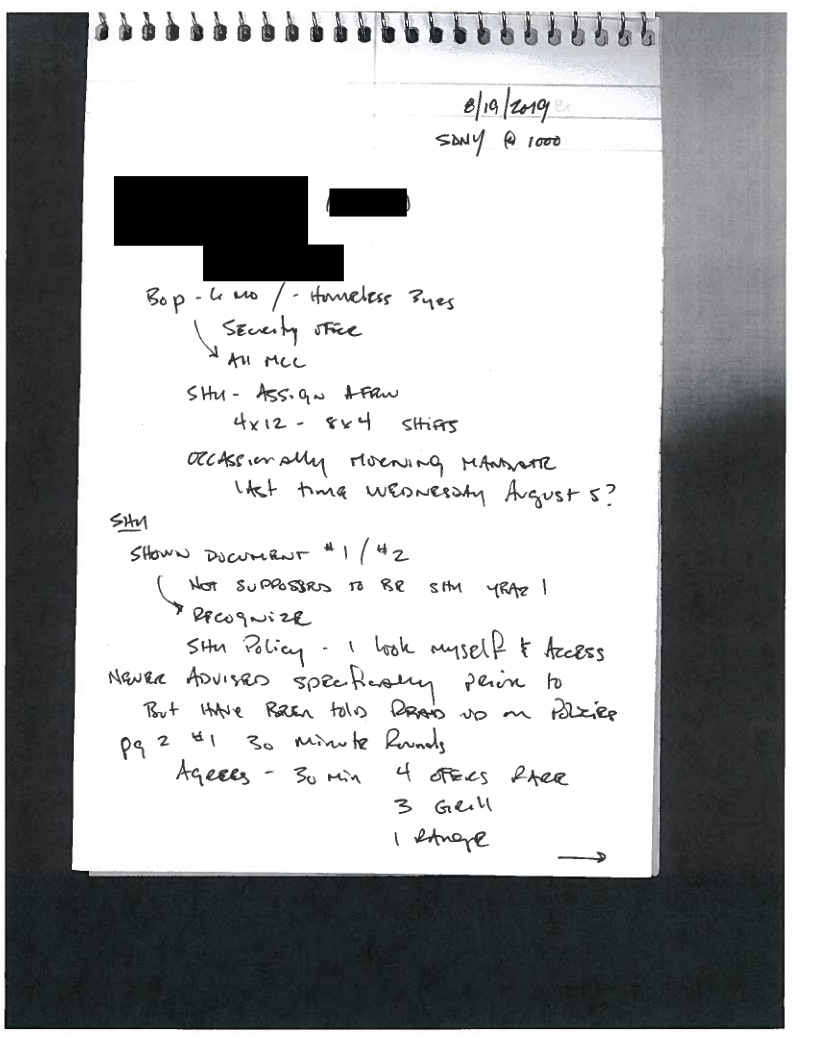 8/19/2019
SDNY @ 1000
BOP - 4 MO / - Homeless 3yrs
Security office
All MCC
SHU - Assign
4x12 - 8x4 SHifts
OCCASSionally Morning MANDATE
LAst time WEDNESDAY August 5?
SHU
SHOWN DOCUMENT #1 / #2
NOT SUPPOSSED TO BE SHU YEAR 1
RECOgNIZE
SHU Policy - I look myself & Access
NEVER ADVISED SPECifically prior to
But HAVE BEEN told READ UP on Policies
pg 2 #1 30 Minute Rounds
AgREES - 30 Min 4 OFFERS RARE
3 GRill
1 RANgE